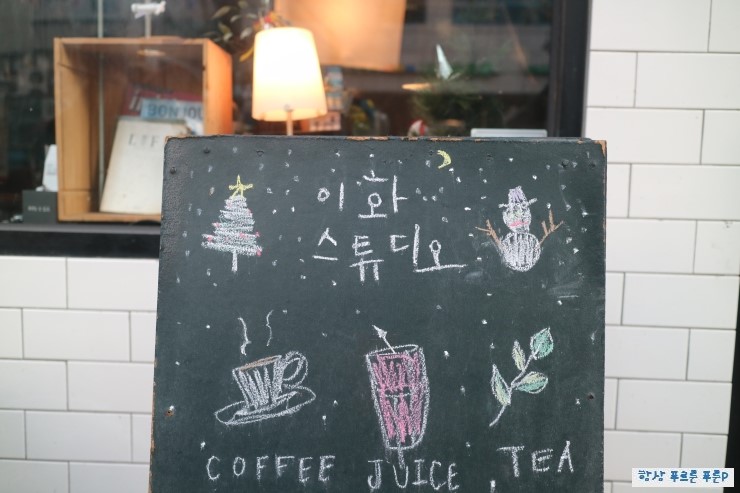 BONJOU
이화
스튜디오
COFFEE JUICE TEA
항상 푸르른 푸른P